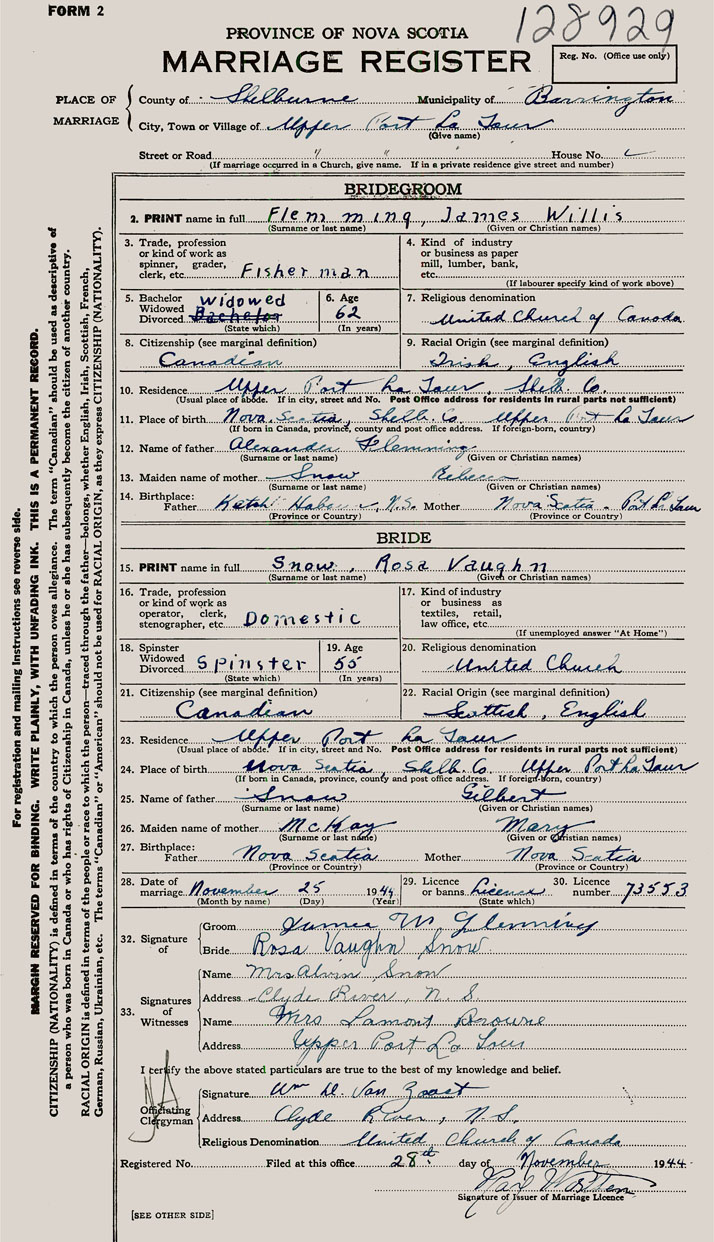 FORM 2
128929
PROVINCE OF NOVA SCOTIA
MARRIAGE REGISTER
Reg. No. (Office use only)
PLACE OF MARRIAGE
County of Shelburne Municipality of Barrington
City, Town or Village of Upper Port La Tour
(Give name)
Street or Road " " House No.
(If marriage occurred in a Church, give name. If in a private residence give street and number)
BRIDEGROOM
2. PRINT name in full Flemming, James Willis
(Surname or last name) (Given or Christian names)
3. Trade, profession or kind of work as spinner, grader, clerk, etc. Fisherman
4. Kind of industry or business as paper mill, lumber, bank, etc.
(If labourer specify kind of work above)
5. Bachelor Widowed Divorced Widowed Bachelor
(State which)
6. Age 62
(In years)
7. Religious denomination
United Church of Canada
8. Citizenship (see marginal definition)
Canadian
9. Racial Origin (see marginal definition)
Irish, English
10. Residence Upper Port La Tour, Shelb. Co.
(Usual place of abode. If in city, street and No. Post Office address for residents in rural parts not sufficient)
11. Place of birth Nova Scotia, Shelb. Co. Upper Port La Tour
(If born in Canada, province, county and post office address. If foreign-born, country)
12. Name of father Alexander Flemming
(Surname or last name) (Given or Christian names)
13. Maiden name of mother Snow Rebecca
(Surname or last name) (Given or Christian names)
14. Birthplace: Father N.S. Mother Nova Scotia - Port La Tour
(Province or Country) (Province or Country)
BRIDE
15. PRINT name in full Snow, Rosa Vaughn
(Surname or last name) (Given or Christian names)
16. Trade, profession or kind of work as operator, clerk, stenographer, etc. Domestic
17. Kind of industry or business as textiles, retail, law office, etc.
(If unemployed answer "At Home")
18. Spinster Widowed Divorced Spinster
(State which)
19. Age 55
(In years)
20. Religious denomination
United Church
21. Citizenship (see marginal definition)
Canadian
22. Racial Origin (see marginal definition)
Scottish, English
23. Residence Upper Port La Tour
(Usual place of abode. If in city, street and No. Post Office address for residents in rural parts not sufficient)
24. Place of birth Nova Scotia, Shelb. Co. Upper Port La Tour
(If born in Canada, province, county and post office address. If foreign-born, country)
25. Name of father Snow Gilbert
(Surname or last name) (Given or Christian names)
26. Maiden name of mother McKay Mary
(Surname or last name) (Given or Christian names)
27. Birthplace: Father Nova Scotia Mother Nova Scotia
(Province or Country) (Province or Country)
28. Date of marriage November 25 1944
(Month by name) (Day) (Year)
29. Licence or banns Licence
(State which)
30. Licence number 73553
32. Signature of
Groom James W Flemming
Bride Rosa Vaughn Snow
33. Signatures of Witnesses
Name Mrs Alvin Snow
Address Clyde River, N.S.
Name Mrs Lamont Browne
Address Upper Port La Tour
I certify the above stated particulars are true to the best of my knowledge and belief.
Officiating Clergyman
Signature Wm D. Van Zoost
Address Clyde River, N.S.
Religious Denomination United Church of Canada
Registered No. Filed at this office 28th day of November 1944
Signature of Issuer of Marriage Licence
[SEE OTHER SIDE]
For registration and mailing instructions see reverse side.
MARGIN RESERVED FOR BINDING. WRITE PLAINLY, WITH UNFADING INK. THIS IS A PERMANENT RECORD.
CITIZENSHIP (NATIONALITY) is defined in terms of the country to which the person owes allegiance. The term "Canadian" should be used as descriptive of
a person who was born in Canada or who has rights of Citizenship in Canada, unless he or she has subsequently become the citizen of another country.
RACIAL ORIGIN is defined in terms of the people or race to which the person—traced through the father—belongs, whether English, Irish, Scottish, French,
German, Russian, Ukrainian, etc. The terms "Canadian" or "American" should not be used for RACIAL ORIGIN, as they express CITIZENSHIP (NATIONALITY).